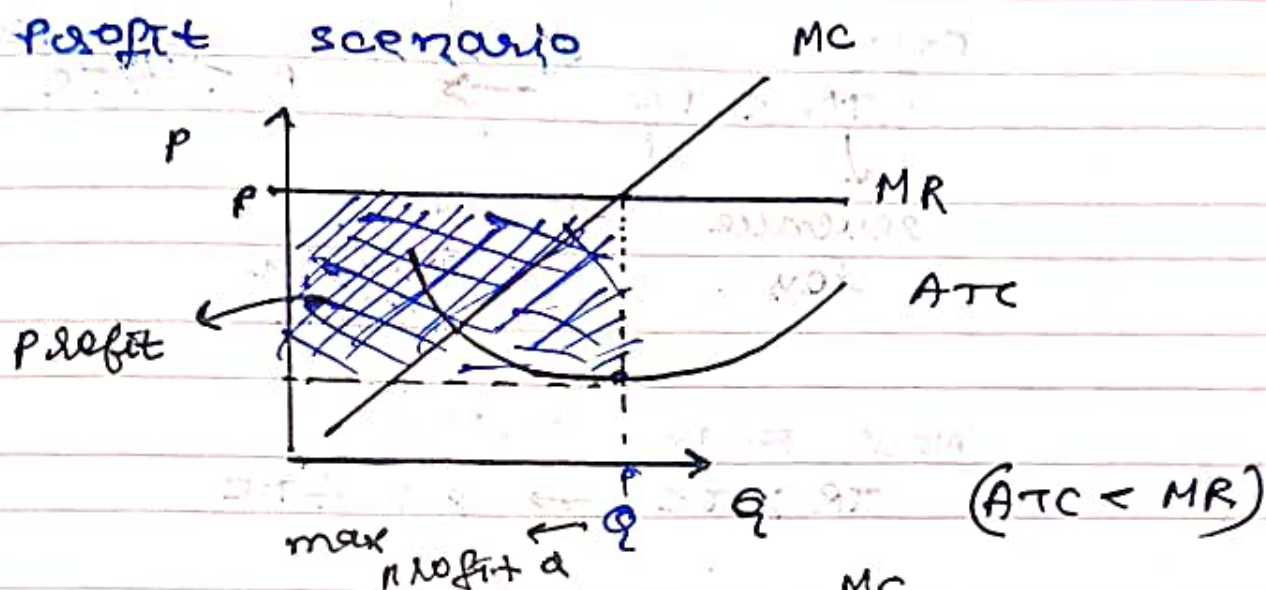 Profit scenario
MC
P
P
MR
ATC
Profit
P
Q
Q
(ATC < MR)
max profit Q
MC